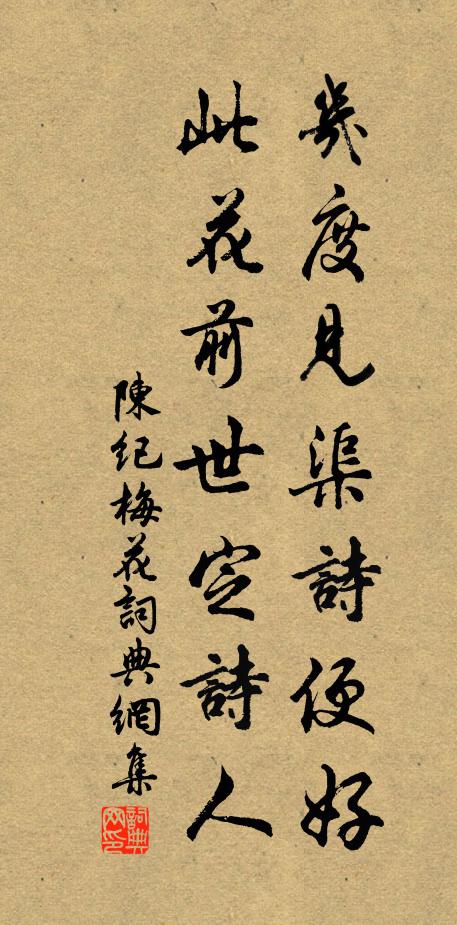 幾度見渠詩便好
此花前世定詩人
陳紀梅花詞典網集
詞典網印